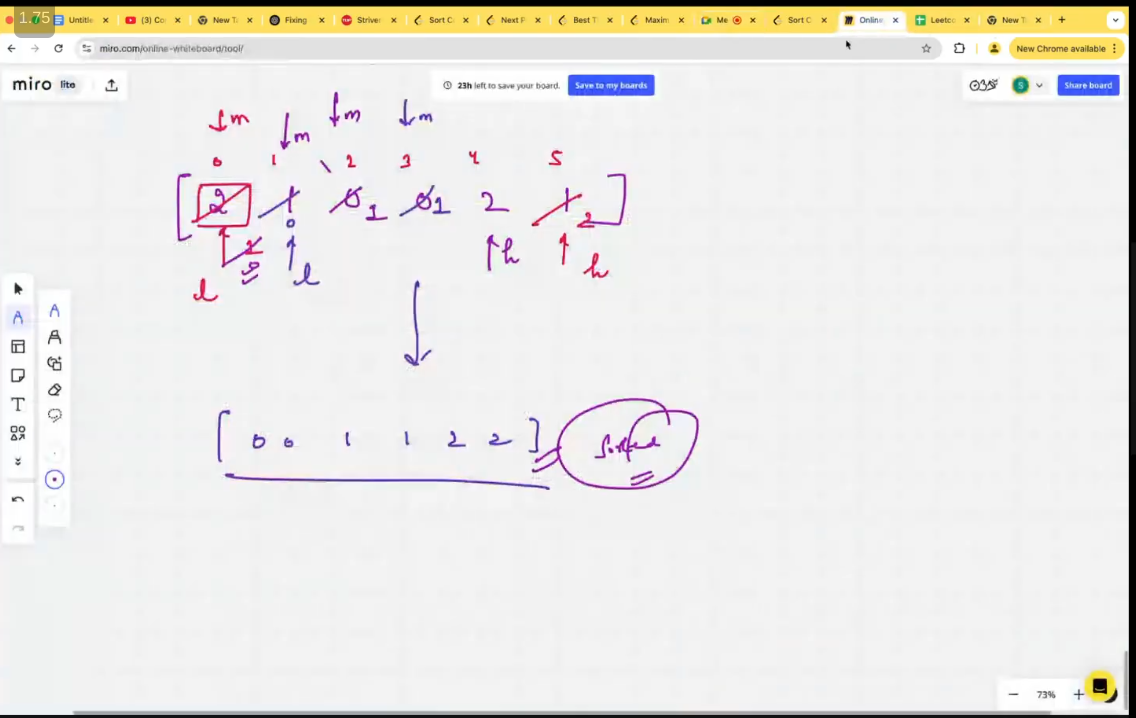 1.75
Untitle (3) Co New Ta Fixing Striver Sort C Next P Best T Maxim Me Sort C Online Leetco New T
miro.com/online-whiteboard/tool/ New Chrome available
miro lite 23h left to save your board. Save to my boards S Share board
m m m m
0 1 2 3 4 5
[ 2 1 0 1 0 1 2 1 2 ]
2 0 h
0 l h
l
[ 0 0 1 1 2 2 ] Sorted
73%